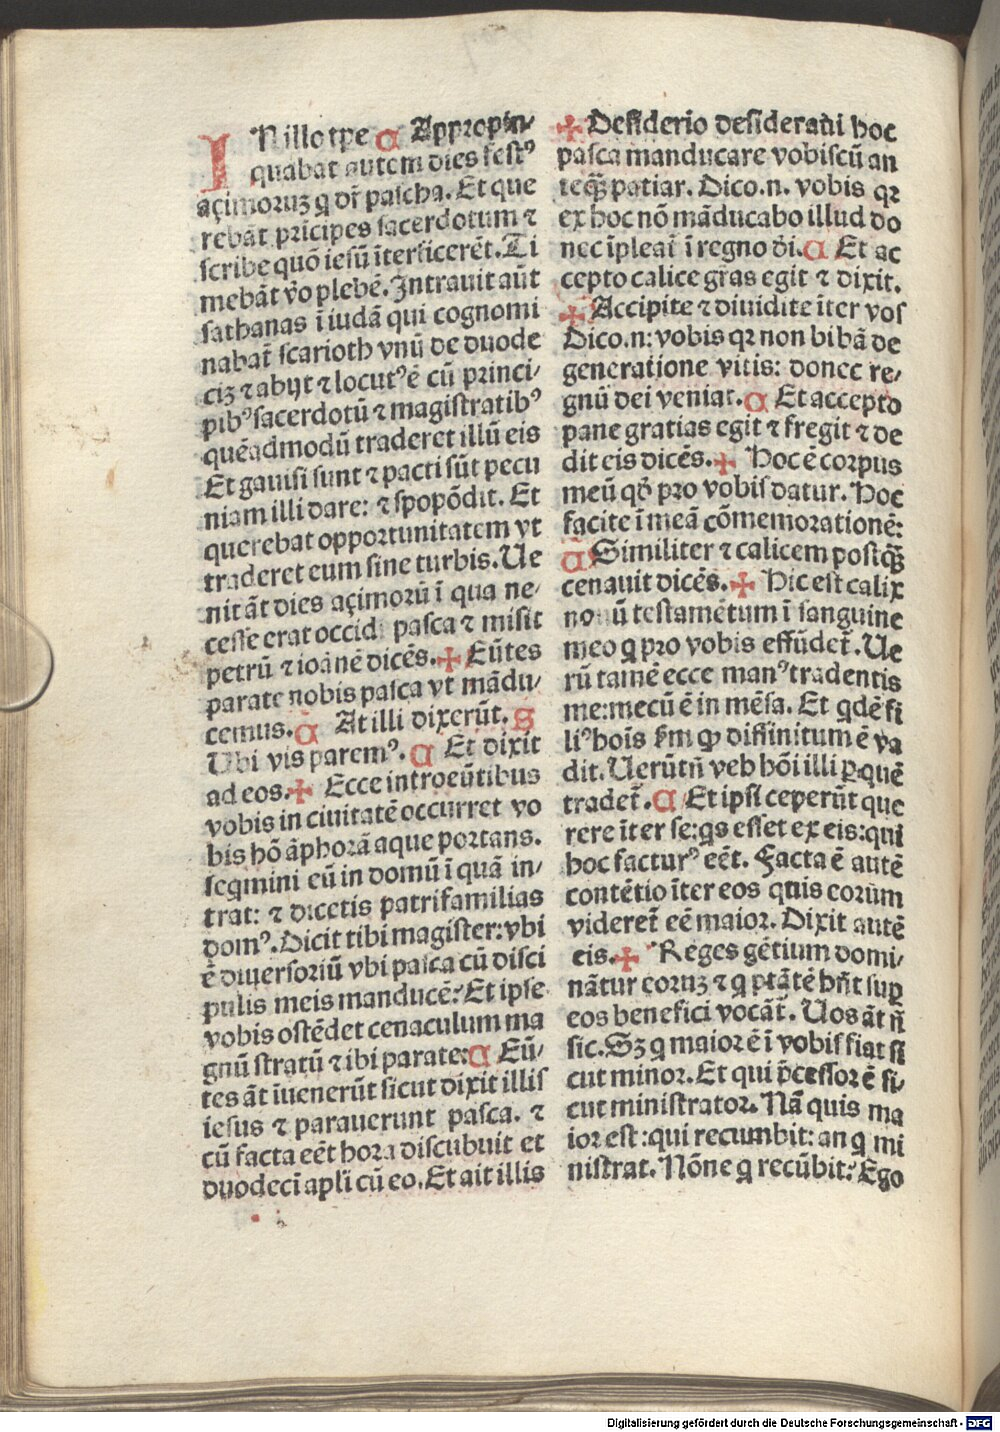 IN illo tp̄e C Appropin⸗
quabat autem dies fest⁹
açimoruȝ q dr̄ pascha. Et que
rebāt prīcipes sacerdotum ⁊
scribe quō iesū īterficerēt. Ti
mebāt v̄o plebē. Intrauit aūt
sathanas ī iudā qui cognomi
nabat̄ scarioth vnū de duode
ciȝ ⁊ abijt ⁊ locut⁹ ē cū princi⸗
pib⁹ sacerdotū ⁊ magistratib⁹
quēadmodū traderet illū eis
Et gauisi sunt ⁊ pacti sūt pecu
niam illi dare: ⁊ spopōdit. Et
querebat opportunitatem vt
traderet eum sine turbis. Ue
nit āt dies açimorū ī qua ne⸗
cesse erat occidi pasca ⁊ misit
petrū ⁊ ioānē dicēs. ✠ Eūtes
parate nobis pasca vt mādu⸗
cemus. C At illi dixerūt. S
Ubi vis parem⁹. C Et dixit
ad eos. ✠ Ecce introeūtibus
vobis in ciuitatē occurret vo
bis hō āphorā aque portans.
seqmini eū in domū ī quā in⸗
trat: ⁊ dicetis patrifamilias
dom⁹. Dicit tibi magister: vbi
ē diuersoriū vbi pasca cū disci
pulis meis manducē? Et ipse
vobis ostēdet cenaculum ma
gnū stratū ⁊ ibi parate: C Eū⸗
tes āt īuenerūt sicut dixit illis
iesus ⁊ parauerunt pasca. ⁊
cū facta eēt hora discubuit et
duodecī apl̄i cū eo. Et ait illis
✠ Desiderio desideraui hoc
pasca manducare vobiscū an
teqꝫ̄ patiar. Dico.n. vobis qꝛ
ex hoc nō māducabo illud do
nec īpleat̄ ī regno dī. C Et ac
cepto calice gr̄as egit ⁊ dixit.
✠ Accipite ⁊ diuidite īter vos
Dico.n: vobis qꝛ non bibā de
generatione vitis: donec re⸗
gnū dei veniat. C Et accepto
pane gratias egit ⁊ fregit ⁊ de
dit eis dicēs. ✠ Hoc ē corpus
meū qd̄ pro vobis datur. Hoc
facite ī meā cōmemorationē:
C Similiter ⁊ calicem postqꝫ̄
cenauit dicēs. ✠ Hic est calix
nouū testamētum ī sanguine
meo q pro vobis effūdet̄. Ue
rū tamē ecce man⁹ tradentis
me: mecū ē in mēsa. Et qdē fi
li⁹ hoīs s̄m ꝙ diffinitum ē va
dit. Uerūtn̄ veh hōi illi ꝑ quē
tradet̄. C Et ipsi ceperūt que
rere īter se: qs esset ex eis: qui
hoc factur⁹ eēt. Facta ē autē
contētio īter eos quis eorum
videret̄ eē maior. Dixit autē
eis. ✠ Reges gētium domi⸗
nātur eoruȝ ⁊ q ptātē hn̄t suꝑ
eos benefici vocāt̄. Uos āt n̄
sic. Sȝ q maior ē ī vobis fiat si
cut minor. Et qui p̄cessor ē si⸗
cut ministrator. Nā quis ma
ior est: qui recumbit: an q mi
nistrat. Nōne q recūbit? Ego
Digitalisierung gefördert durch die Deutsche Forschungsgemeinschaft - DFG